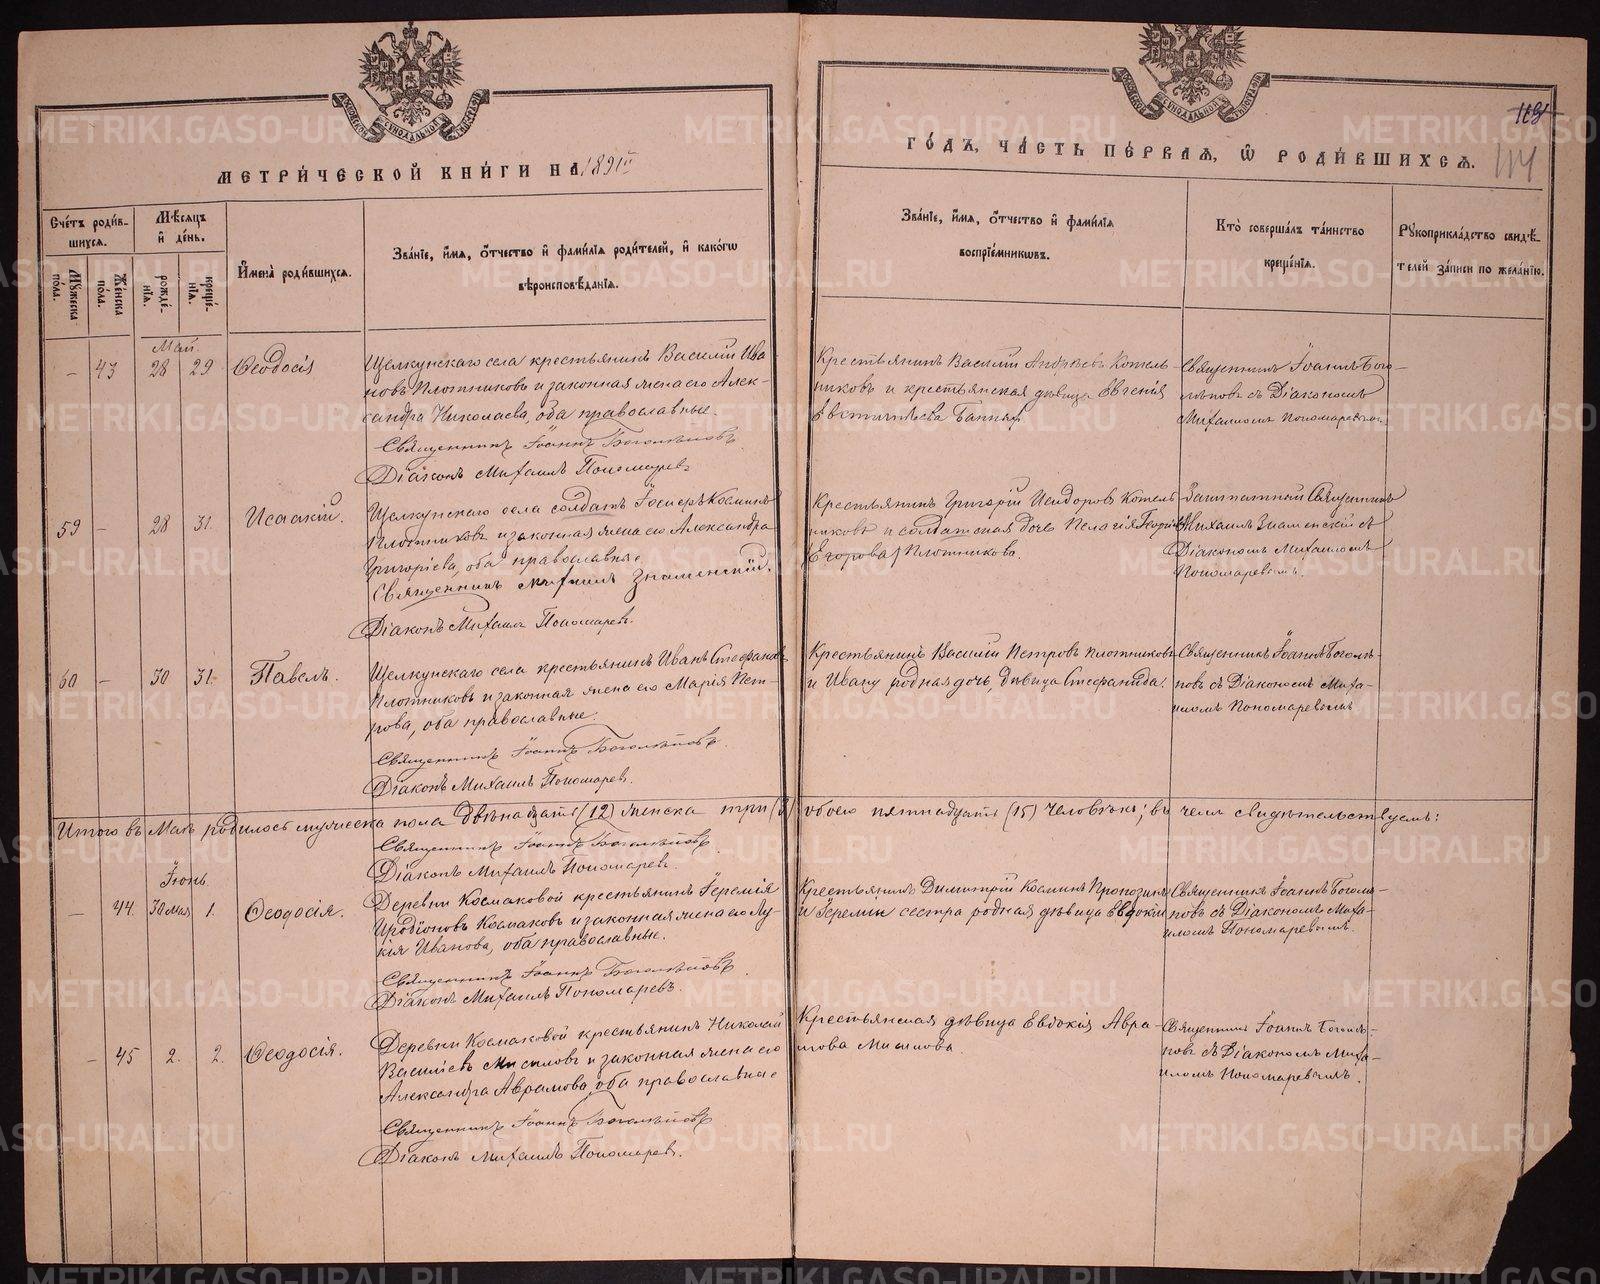 МЕТРИЧЕСКОЙ КНИГИ НА 1891й
ГОДЪ, ЧАСТЬ ПЕРВАЯ, Ѡ РОДИВШИХСЯ.
114
Счетъ родив-
шихся.
Мѣсяцъ
и день.
Мужеска
пола.
Женска
пола.
рожде-
нія.
креще-
нія.
Имена родившихся.
Званіе, имя, отчество и фамилія родителей, и какого
вѣроисповѣданія.
Званіе, имя, отчество и фамилія
воспріемниковъ.
Кто совершалъ таинство
крещенія.
Рукоприкладство свидѣ-
телей записи по желанію.
Май.
– 43 28 29 Ѳеодосія
Щелкунскаго села крестьянинъ Василій Ива-
новъ Плотниковъ и законная жена его Алек-
сандра Николаева, оба православные.
Священникъ Іоаннъ Боголѣповъ
Діаконъ Михаилъ Пономаревъ
Крестьянинъ Василій Андреевъ Котель-
никовъ и крестьянская дѣвица Евгенія
Священникъ Іоаннъ Бого-
лѣповъ съ Діакономъ
Михаиломъ Пономаревымъ
59 – 28 31. Исаакій.
Щелкунскаго села солдатъ Косминъ
Плотниковъ и законная жена его Александра
Григоріева, оба православные
Священникъ Михаилъ Знаменскій.
Діаконъ Михаилъ Пономаревъ.
Крестьянинъ Григорій Исидоровъ Котель-
никовъ и солдатская дочь Пелагія Георгіева
(Егорова) Плотникова.
Заштатный Священникъ
Михаилъ Знаменскій съ
Діакономъ Михаиломъ
Пономаревымъ.
60 – 30 31. Павелъ.
Щелкунскаго села крестьянинъ Иванъ Стефановъ
Плотниковъ и законная жена его Марія Пет-
рова, оба православные.
Священникъ Іоаннъ Боголѣповъ.
Діаконъ Михаилъ Пономаревъ.
Крестьянинъ Василій Петровъ Плотниковъ
и Ивану родная дочь, дѣвица Стефанида.
Священникъ Іоаннъ Боголѣ-
повъ съ Діакономъ Миха-
иломъ Пономаревымъ
Итого въ Маѣ родилось мужеска пола двѣнадцать (12) женска три (3) обоего пятнадцать (15) человѣкъ; въ чемъ свидѣтельствуемъ:
Священникъ Іоаннъ Боголѣповъ.
Діаконъ Михаилъ Пономаревъ.
Іюнь
– 44. 30 мая 1. Ѳеодосія.
Деревни Космаковой крестьянинъ Іеремія
Иродіоновъ Космаковъ и законная жена его Лу-
кія Иванова, оба православные.
Священникъ Іоаннъ Боголѣповъ.
Діаконъ Михаилъ Пономаревъ.
Крестьянинъ Димитрій Косминъ
и Іереміи сестра родная дѣвица Евдокія
Священникъ Іоаннъ Боголѣ-
повъ съ Діакономъ Миха-
иломъ Пономаревымъ.
– 45 2. 2. Ѳеодосія.
Деревни Космаковой крестьянинъ Николай
Василіевъ и законная жена его
Александра Аврамова, оба православные
Священникъ Іоаннъ Боголѣповъ
Діаконъ Михаилъ Пономаревъ.
Крестьянская дѣвица Евдокія Авра-
мова
Священникъ Іоаннъ Боголѣ-
повъ съ Діакономъ Миха-
иломъ Пономаревымъ.
METRIKI.GASO-URAL.RU